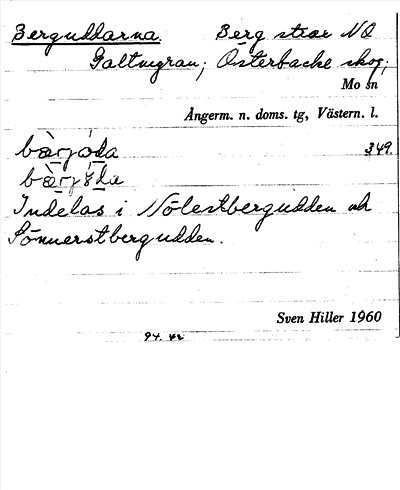 Berguddarna. Berg strax NO
Galtmyran; Österbacke skog;
Mo sn
Ångerm. n. doms. tg, Västern. l.
349.
Indelas i Nölestbergudden och
Sönnerstbergudden.
Sven Hiller 1960